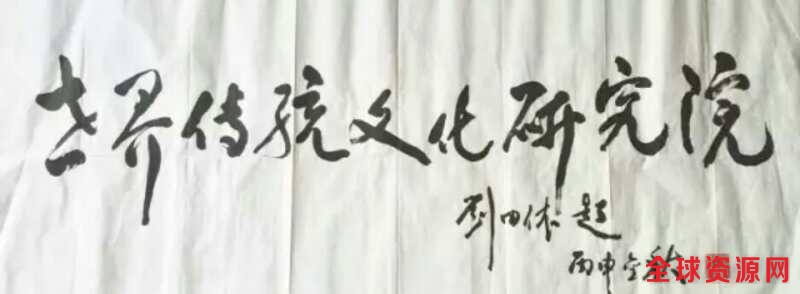 世界传统文化研究院
刘田依 题
丙申金秋
全球资源网